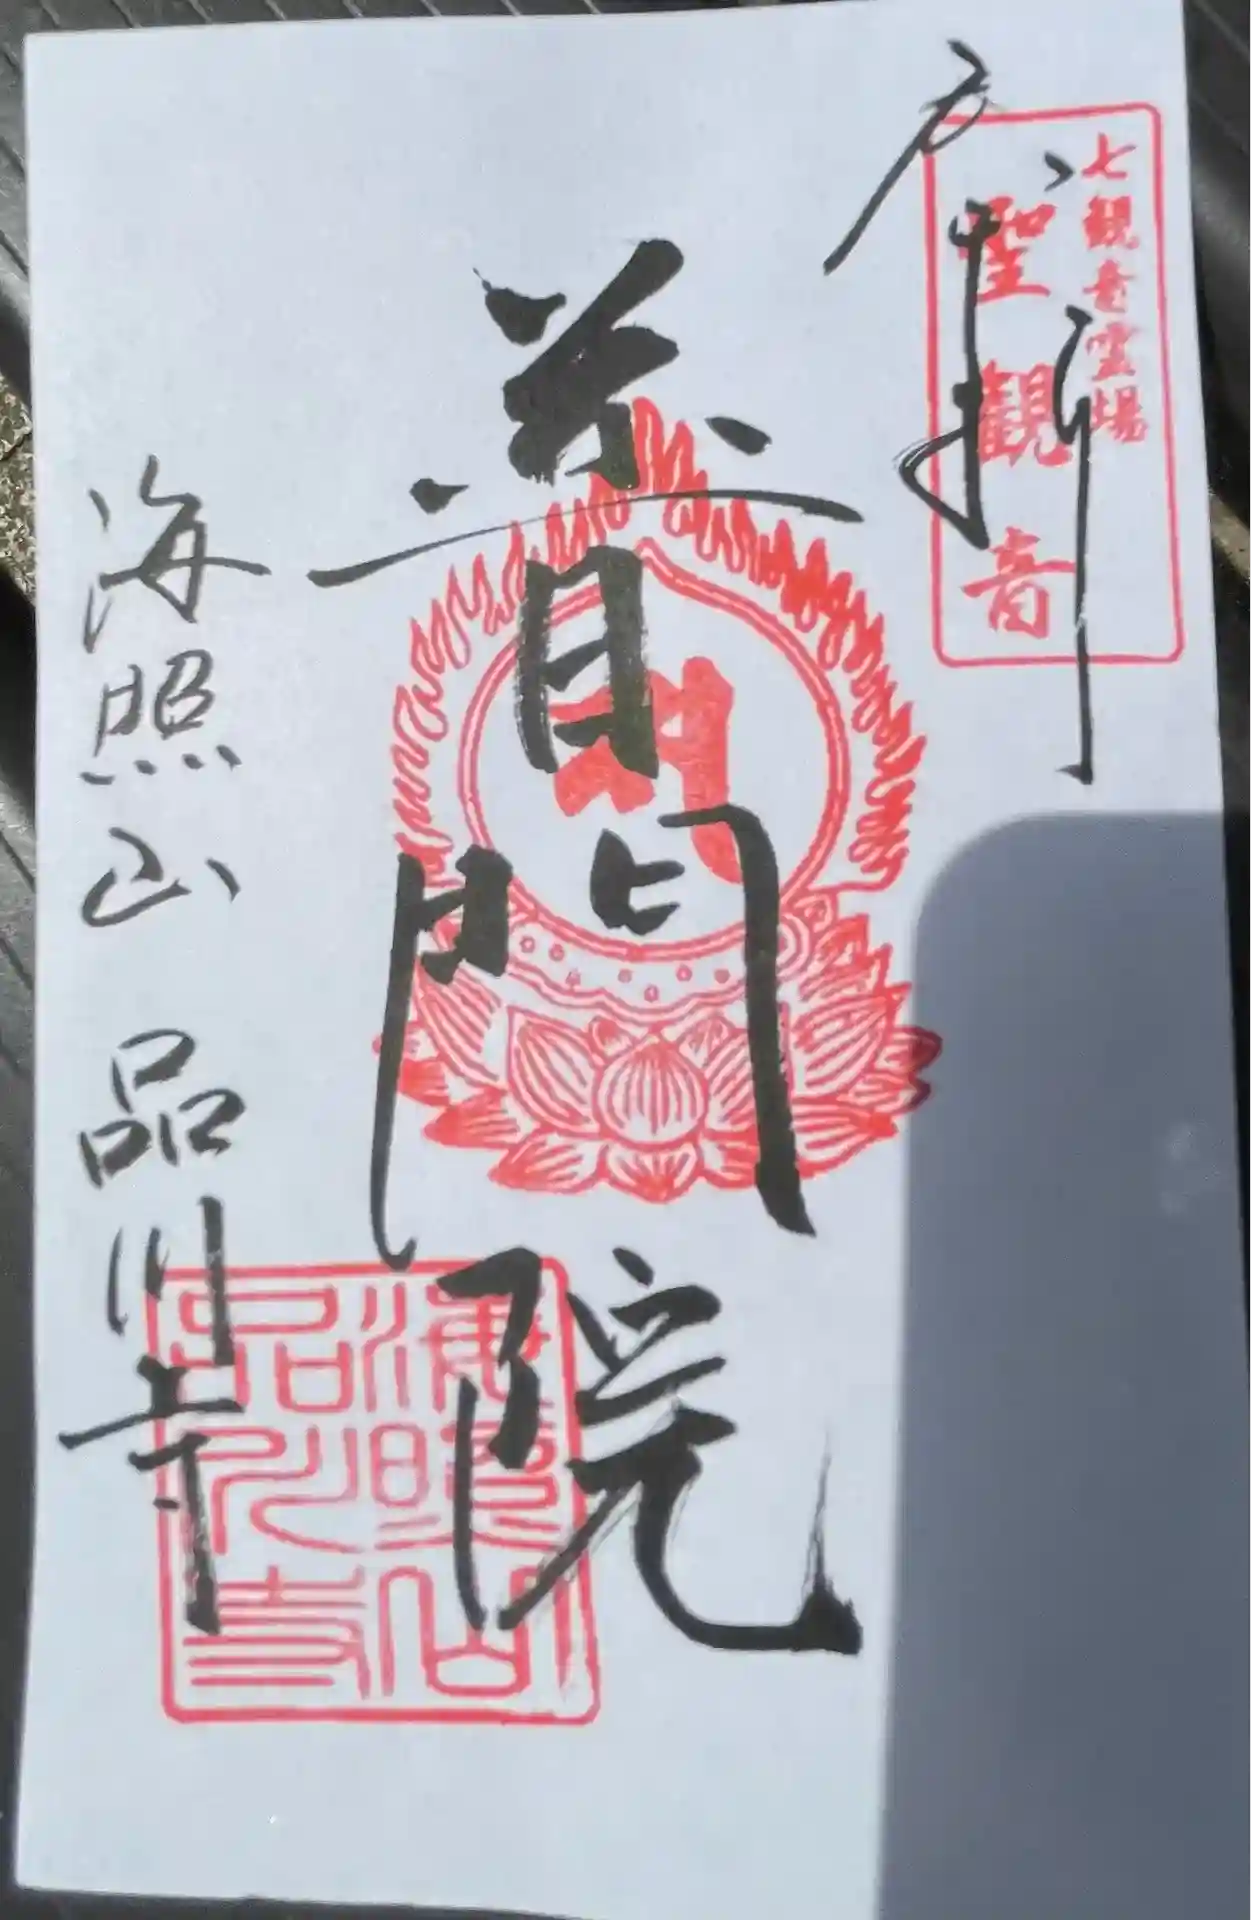 奉拝
七観音霊場
聖観音
普門院
海照山 品川寺
海照山
品川寺